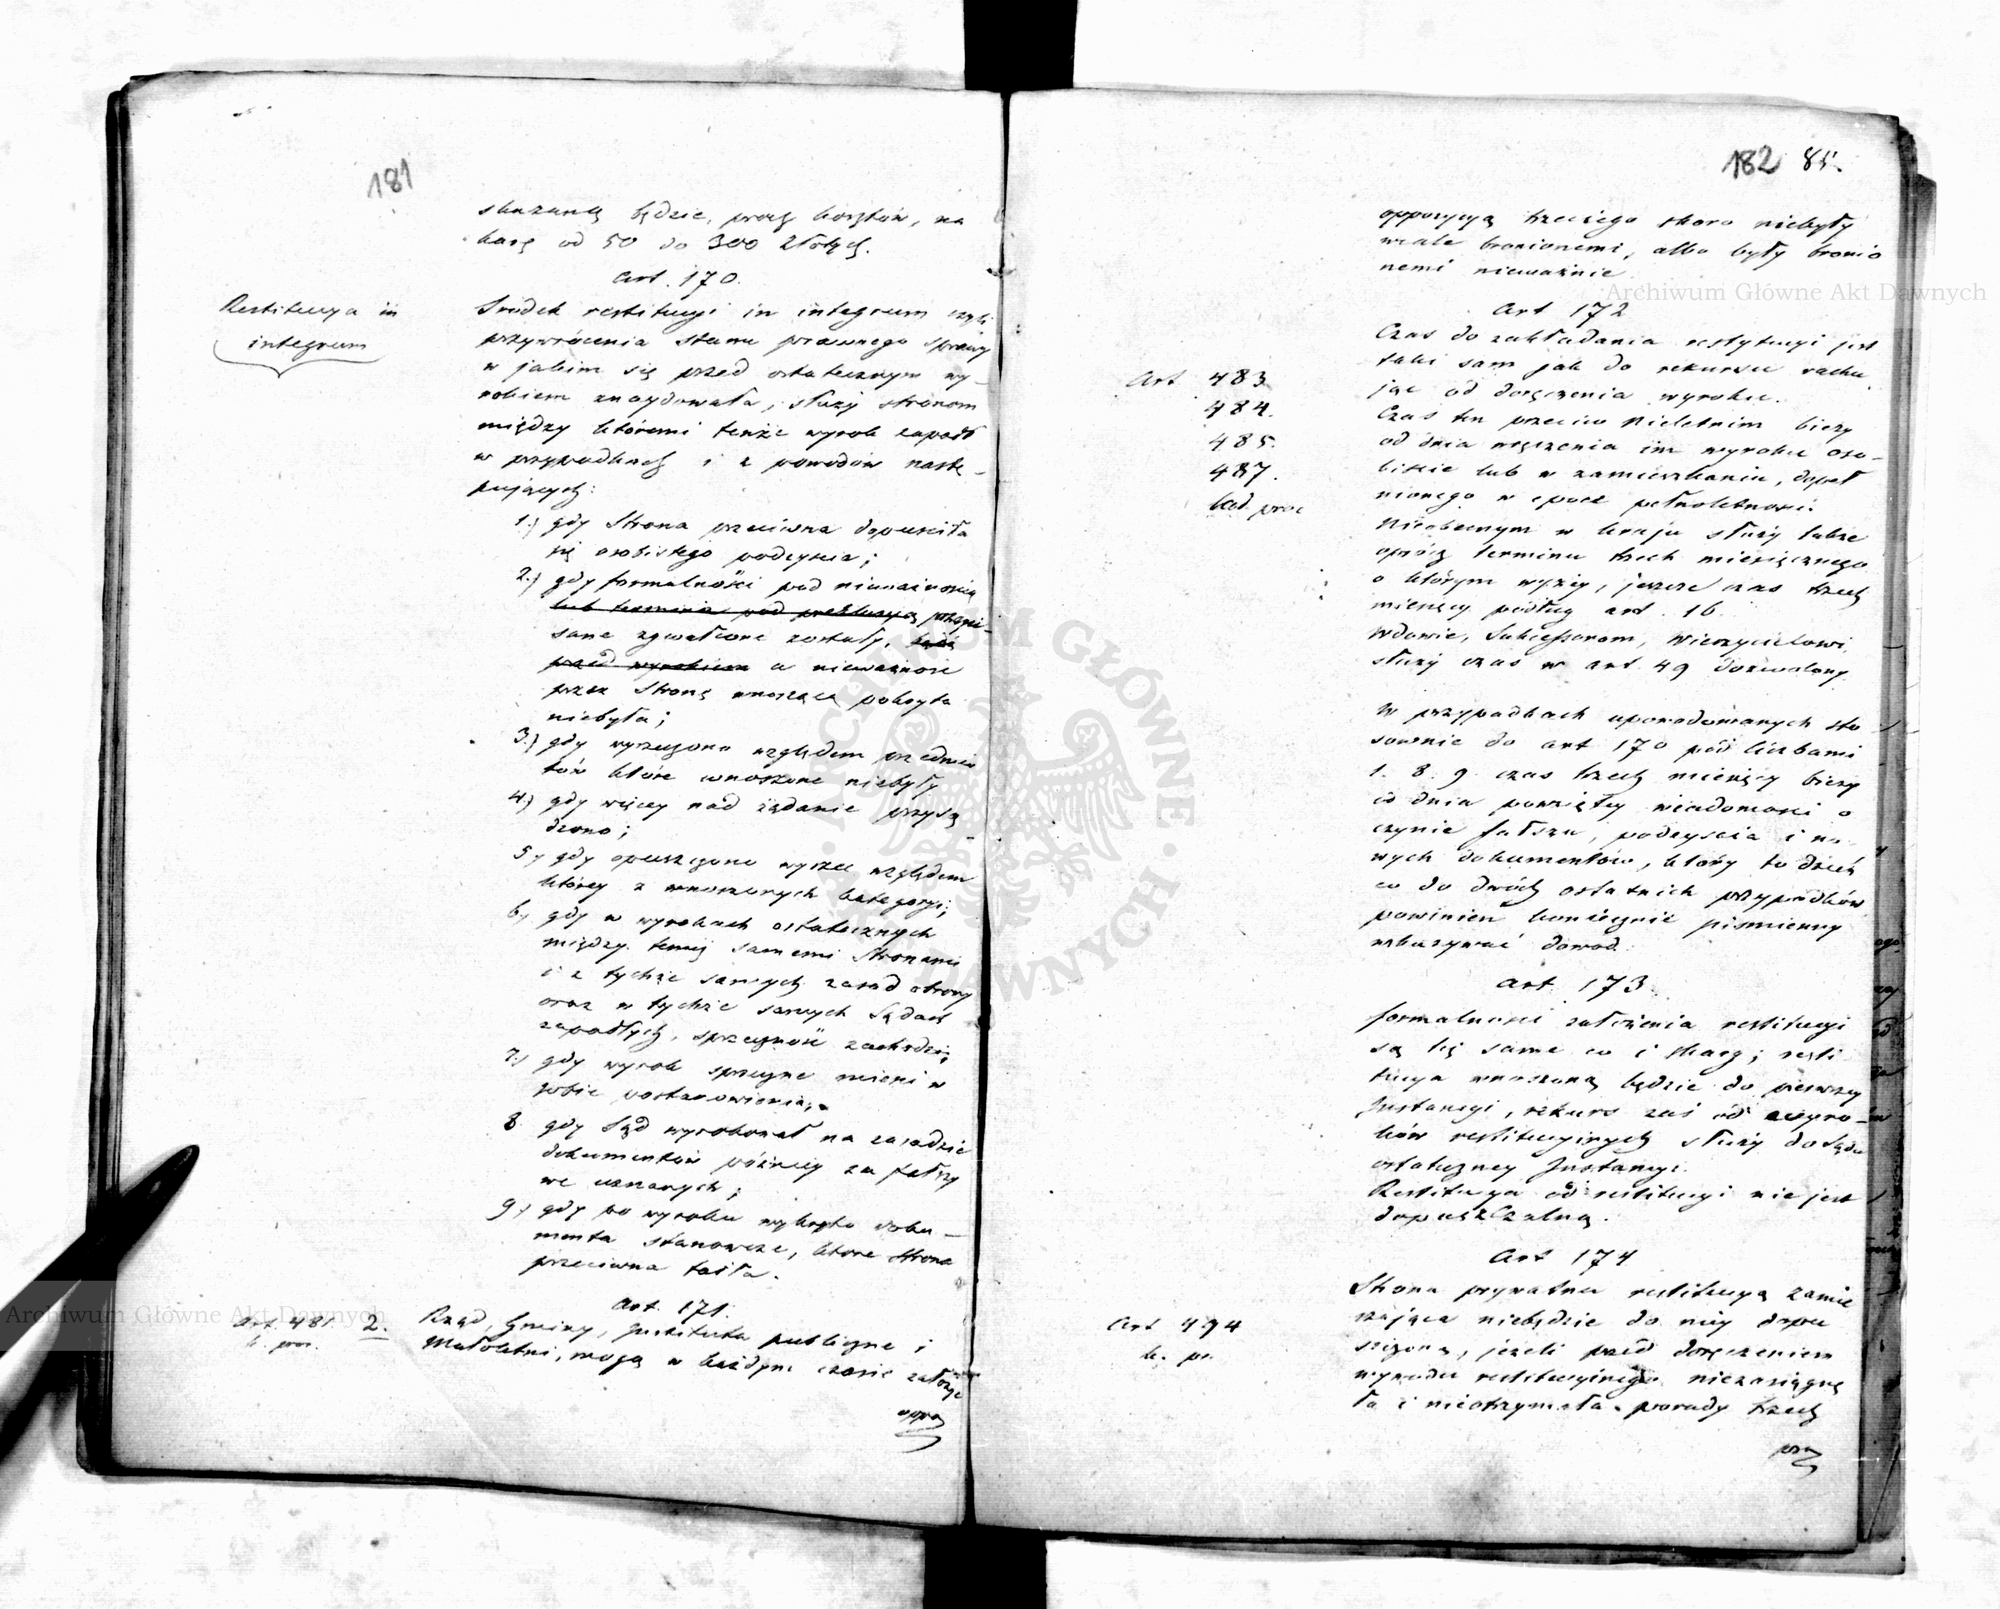 181
skazaną będzie, prócz kosztów, na
karę od 50 do 300 Złotych.
Art. 170.
Restitucya in
integrum
Srodek restitucyi in integrum czyli
przywrócenia stanu prawnego sprawy
w jakim się przed ostatecznym wy-
rokiem znaydowała, służy stronom
między któremi tenże wyrok zapadł
w przypadkach i z powodów nastę-
pujących:
1.) gdy Strona przeciwna dopuściła
się osobistego podeyścia;
2.) gdy formalności pod nieważnością
lub termina pod prekluzyą przepi-
sane zgwałcone zostały, bądź
przed wyrokiem a nieważność
przez Stronę wnoszącą pokryta
niebyła;
3.) gdy wyrzeczono względem przedmio
tów które wnoszone niebyły
4.) gdy więcey nad żądanie przysą
dzono;
5.) gdy opuszczono wyrzec względem
którey z wnoszonych kategoryi;
6.) gdy w wyrokach ostatecznych
między temiż samemi Stronami
i z tychże samych zasad obrony
oraz w tychże samych Sądach
zapadłych, sprzeczność zachodzi;
7.) gdy wyrok sprzeczne mieści w
sobie postanowienia;
8. gdy Sąd wyrokował na zasadzie
dokumentów późniey za fałszy
we uznanych;
9.) gdy po wyroku wykryto doku-
menta stanowcze, które Strona
przeciwna taiła.
Art. 171.
Art. 481 2.
k. proc.
Rząd, Gminy, Instituta publiczne i
Małoletni, mogą w każdym czasie założyć
oppo
182 85.
oppozycyą trzeciego skoro niebyły
wcale bronionemi, albo były bronio
nemi nieważnie
Art 172
Czas do zakładania restytucyi jest
taki sam jak do rekursu rachu
jąc od doręczenia wyroku.
Art 483
484.
485.
487.
Kod. proc
Czas ten przeciw Nieletnim bieży
od dnia wręczenia im wyroku oso-
biście lub w zamieszkaniu, dopeł
nionego w epoce pełnoletności.
Nieobecnym w kraju służy także
oprócz terminu trzech miesięcznego
o którym wyżey, jeszcze czas trzech
miesięcy podług art. 16.
Wdowie, Sukcessorom, Wierzycielowi
służy czas w art. 49 dozwolony
W przypadkach uporadowanych sto
sownie do art 170 pod liczbami
1. 8. 9. czas trzech miesięcy bieży
od dnia powziętey wiadomości o
czynie fałszu, podeyścia i no-
wych dokumentów, który to dzień
co do dwóch ostatnich przypadków
powinien koniecznie piśmienny
wskazywać dowod.
Art 173
formalności założenia restitucyi
są też same co i skargi; resti
tucya wnoszoną będzie do pierwszey
Instancyi, rekurs zaś od wyro-
ków restitucyinych służy do Sądu
ostateczney Instancyi.
Restitucya od restitucyi nie jest
dopuszczalną.
Art 174
Art 494
k. pr.
Strona prywatna restitucyą zamie
rzająca niebędzie do niey dopu
szczoną, jeżeli przed doręczeniem
wyroku restitucyinego niezasiągnę
ła i nieotrzymała porady trzech
pra
Archiwum Główne Akt Dawnych
Archiwum Główne Akt Dawnych
ARCHIWUM GŁÓWNE AKT DAWNYCH